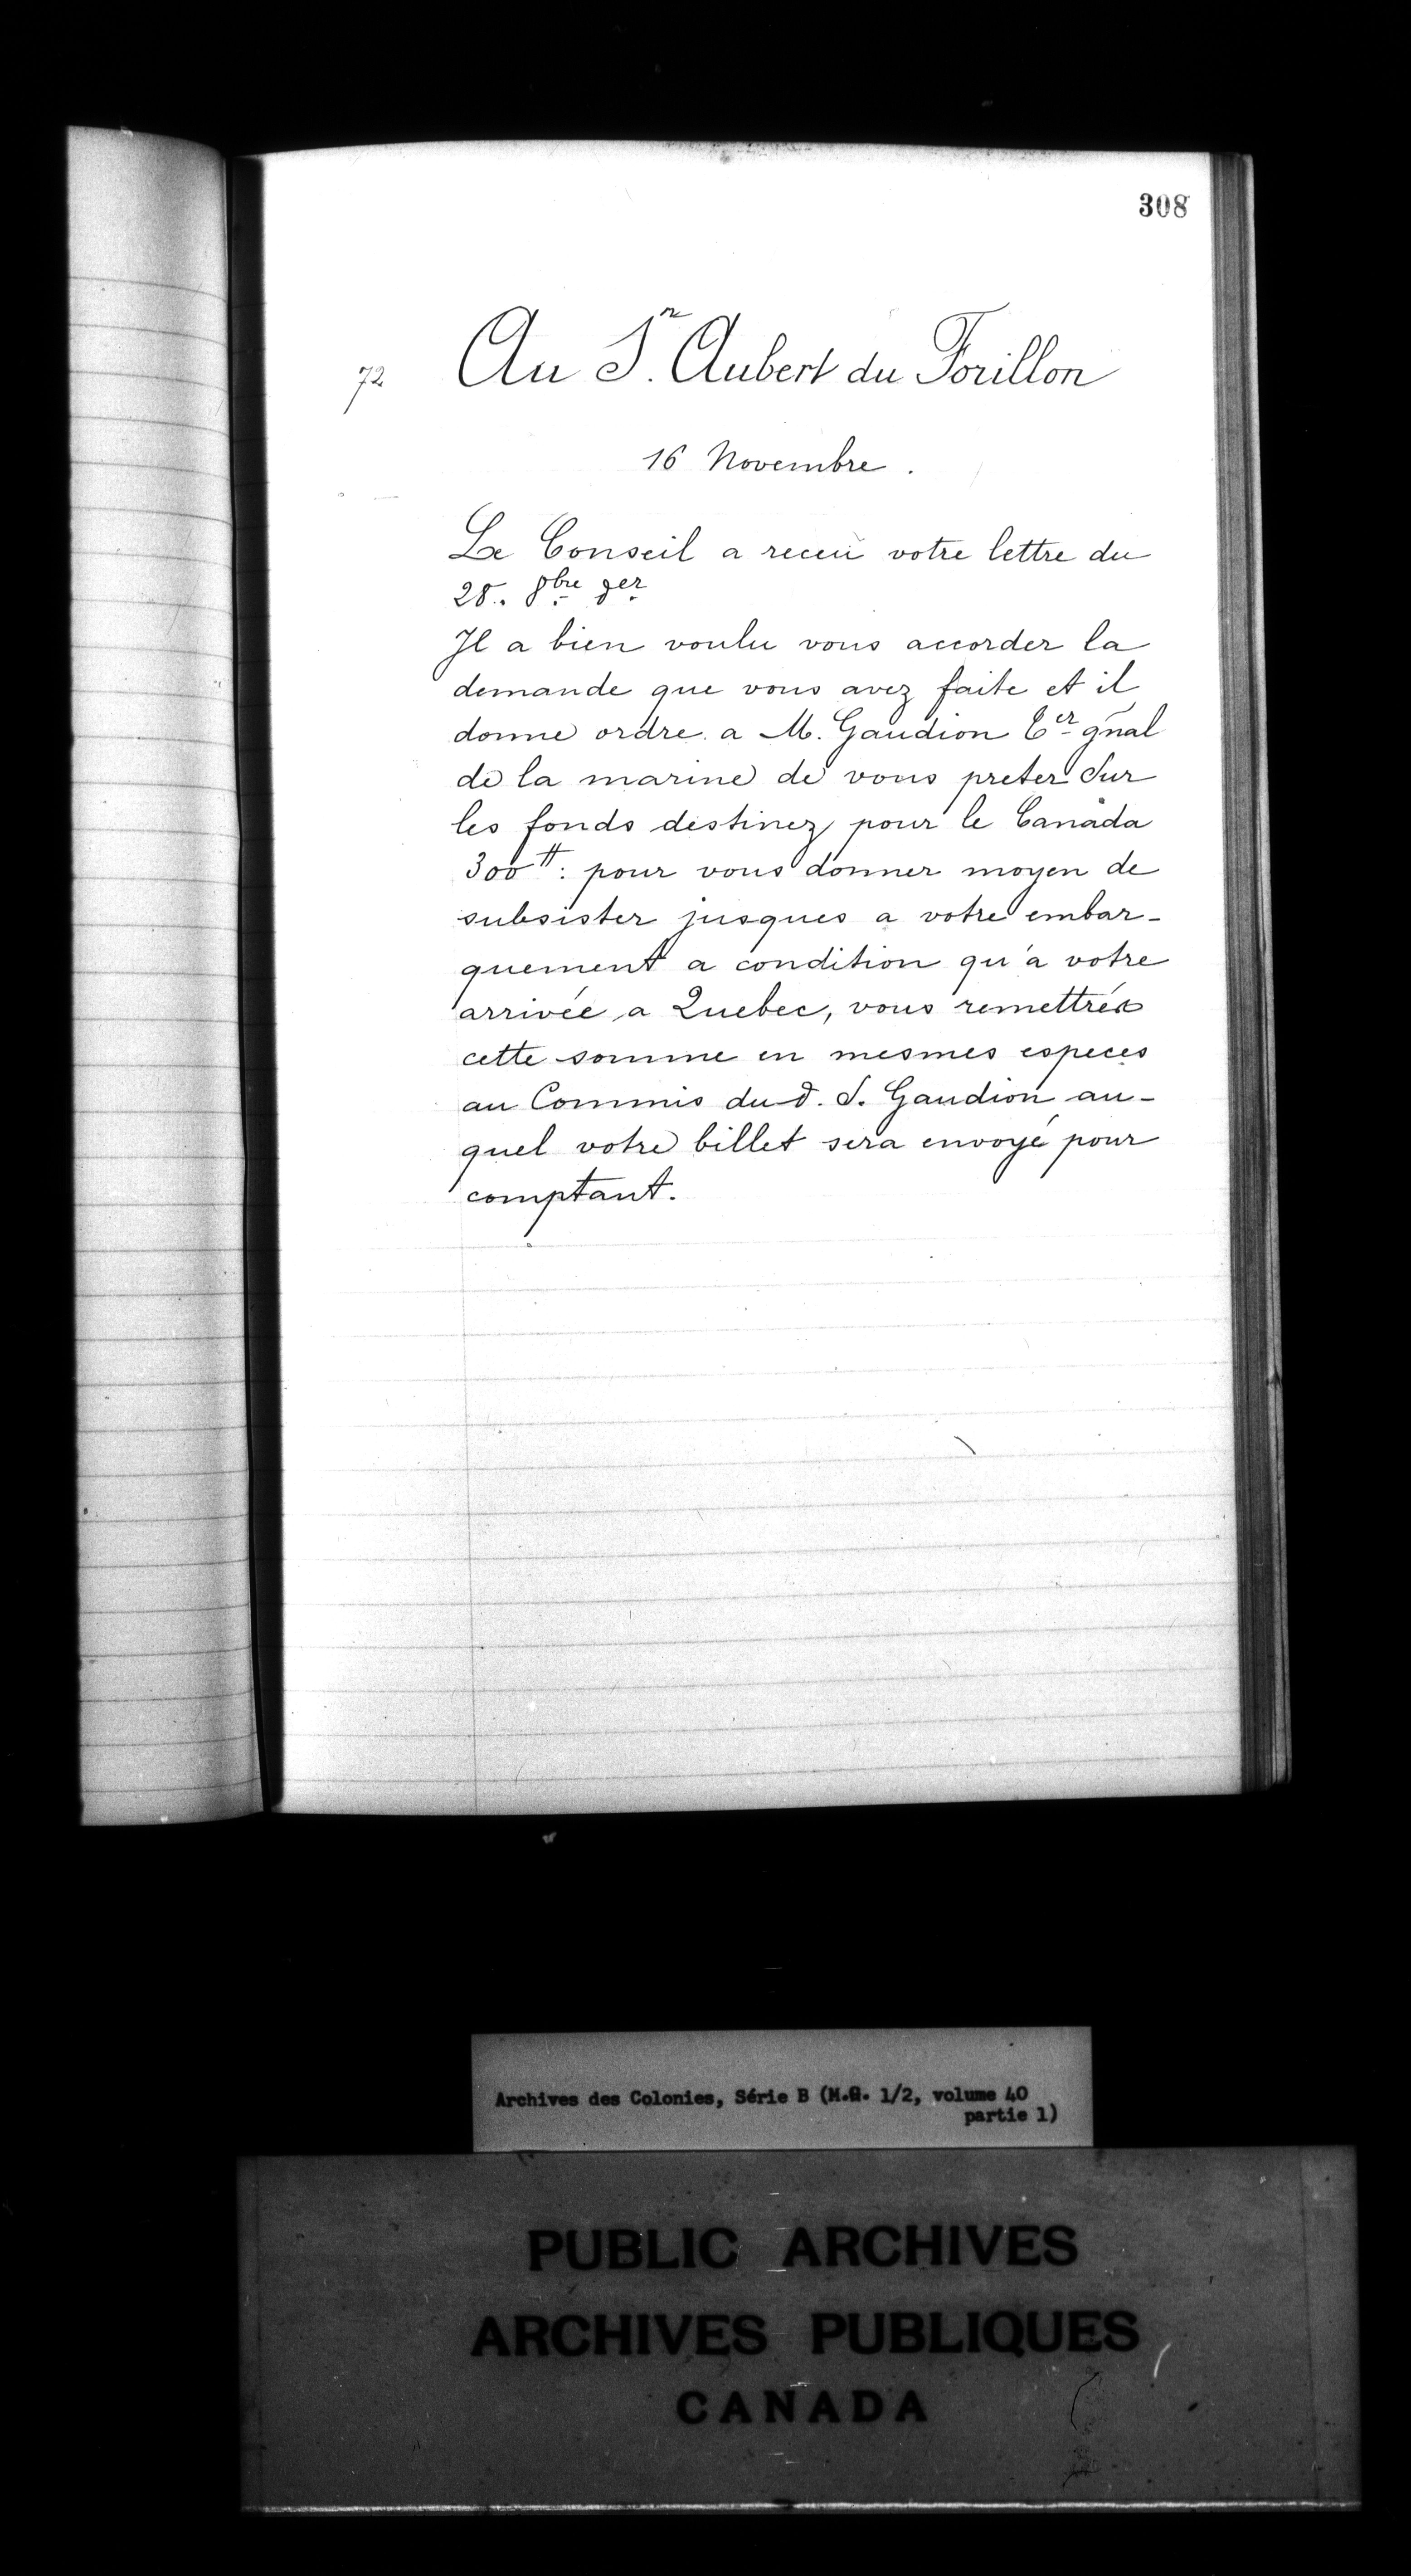 308
72
Au S.r Aubert du Forillon
16 Novembre.
Le Conseil a receu votre lettre du
28. 8bre der
Il a bien voulu vous accorder la
demande que vous avez faite et il
donne ordre a M. Gaudion Ter gñal
de la marine de vous preter sur
les fonds destinez pour le Canada
300 ₶: pour vous donner moyen de
subsister jusques a votre embar-
quement a condition qu'a votre
arrivée a Quebec, vous remettréz
cette somme en mesmes especes
au Commis du d. S. Gaudion au-
quel votre billet sera envoyé pour
comptant.
Archives des Colonies, Série B (M.G. 1/2, volume 40
partie 1)
PUBLIC ARCHIVES
ARCHIVES PUBLIQUES
CANADA